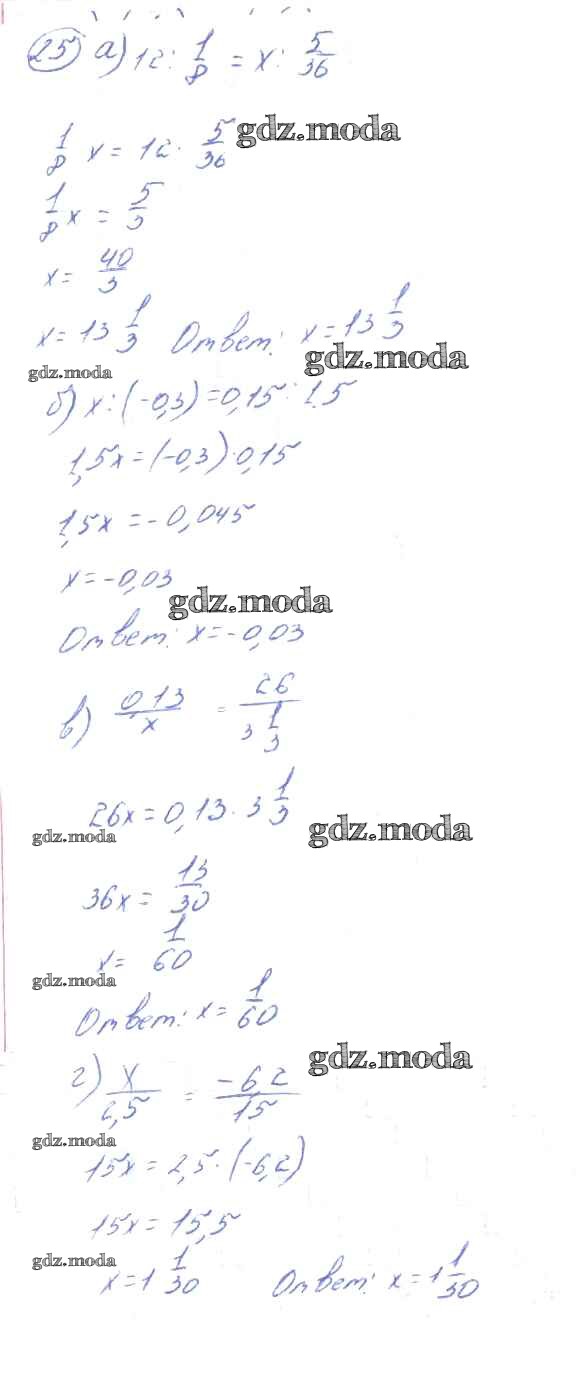 25) а) 12 : 1/8 = x : 5/36
1/8 x = 12 · 5/36
gdz.moda
1/8 x = 5/3
x = 40/3
x = 13 1/3 Ответ: x = 13 1/3
gdz.moda
gdz.moda
б) x : (-0,3) = 0,15 : 1,5
1,5x = (-0,3) · 0,15
1,5x = -0,045
x = -0,03
gdz.moda
Ответ: x = -0,03
в) 0,13/x = 26/3 1/3
26x = 0,13 · 3 1/3
gdz.moda
gdz.moda
36x = 13/30
x = 1/60
gdz.moda
Ответ: x = 1/60
gdz.moda
г) x/2,5 = -6,2/15
gdz.moda
15x = 2,5 · (-6,2)
15x = 15,5
gdz.moda
x = 1 1/30 Ответ: x = 1 1/30